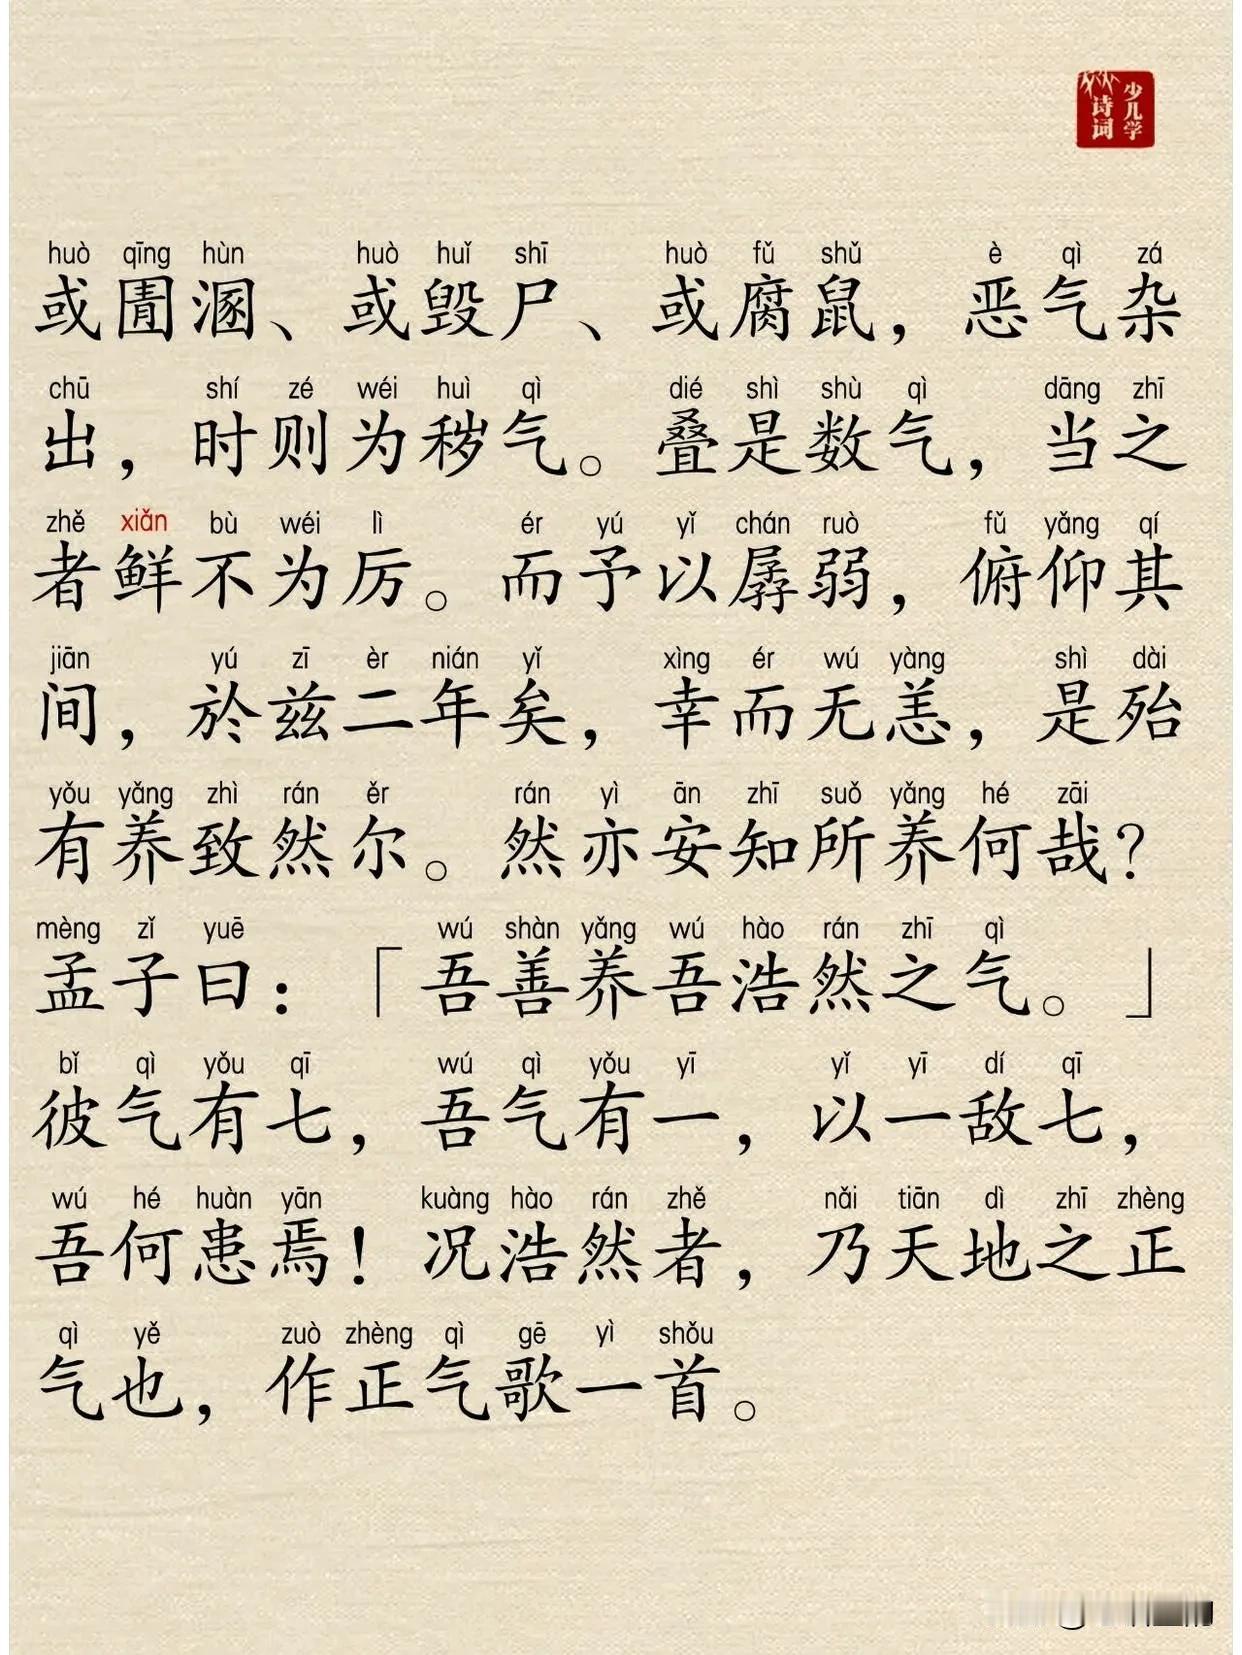 少儿学
诗词
huò qīng hùn huò huǐ shī huò fǔ shǔ è qì zá
或圊溷、或毁尸、或腐鼠，恶气杂
chū shí zé wéi huì qì dié shì shù qì dāng zhī
出，时则为秽气。叠是数气，当之
zhě xiǎn bù wéi lì ér yú yǐ chán ruò fǔ yǎng qí
者鲜不为厉。而予以孱弱，俯仰其
jiān yú zī èr nián yǐ xìng ér wú yàng shì dài
间，於兹二年矣，幸而无恙，是殆
yǒu yǎng zhì rán ěr rán yì ān zhī suǒ yǎng hé zāi
有养致然尔。然亦安知所养何哉？
mèng zǐ yuē wú shàn yǎng wú hào rán zhī qì
孟子曰：「吾善养吾浩然之气。」
bǐ qì yǒu qī wú qì yǒu yī yǐ yī dí qī
彼气有七，吾气有一，以一敌七，
wú hé huàn yān kuàng hào rán zhě nǎi tiān dì zhī zhèng
吾何患焉！况浩然者，乃天地之正
qì yě zuò zhèng qì gē yì shǒu
气也，作正气歌一首。